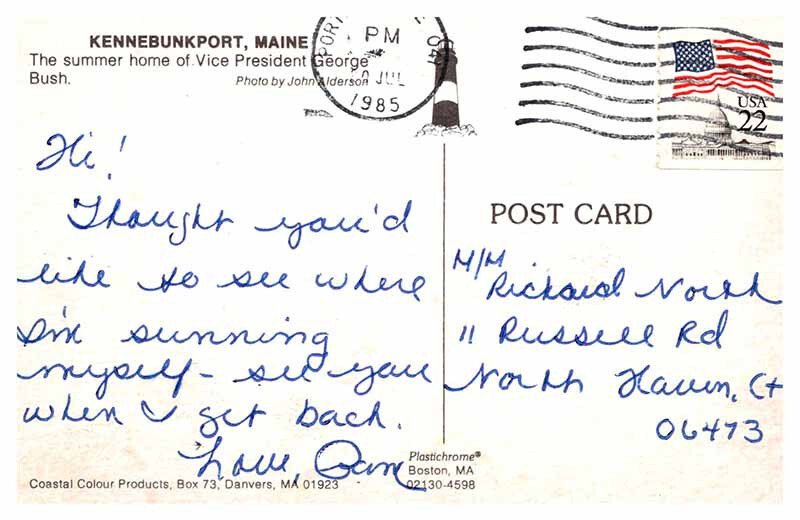 KENNEBUNKPORT, MAINE
The summer home of Vice President George
Bush.
Photo by John Alderson
PM
JUL
1985
USA
22
Hi!
Thought you'd
like to see where
I'm sunning
myself - see you
when I get back.
Love, Pam
POST CARD
M/M
Richard North
11 Russell Rd
North Haven, Ct
06473
Plastichrome®
Boston, MA
02130-4598
Coastal Colour Products, Box 73, Danvers, MA 01923